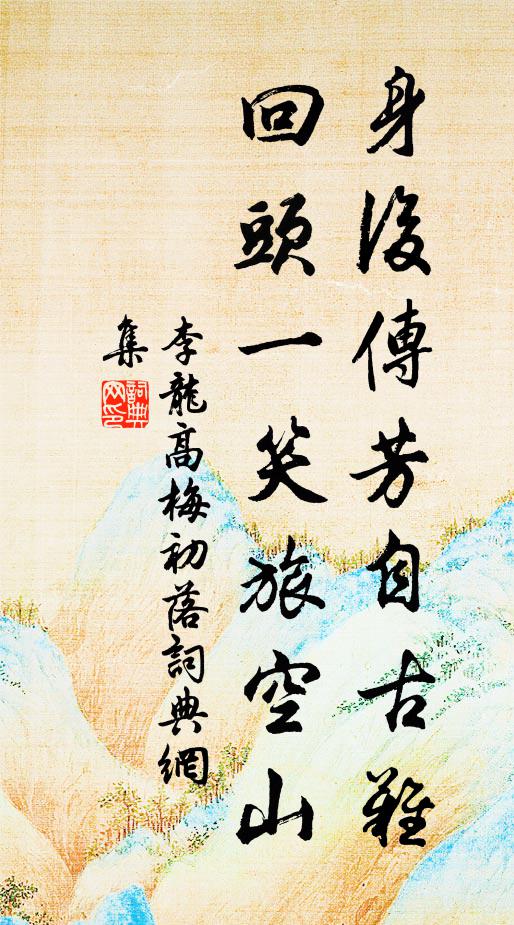 身後傳芳自古難
回頭一笑旅空山
李龍高梅初落詞典網
集
詞典
网印